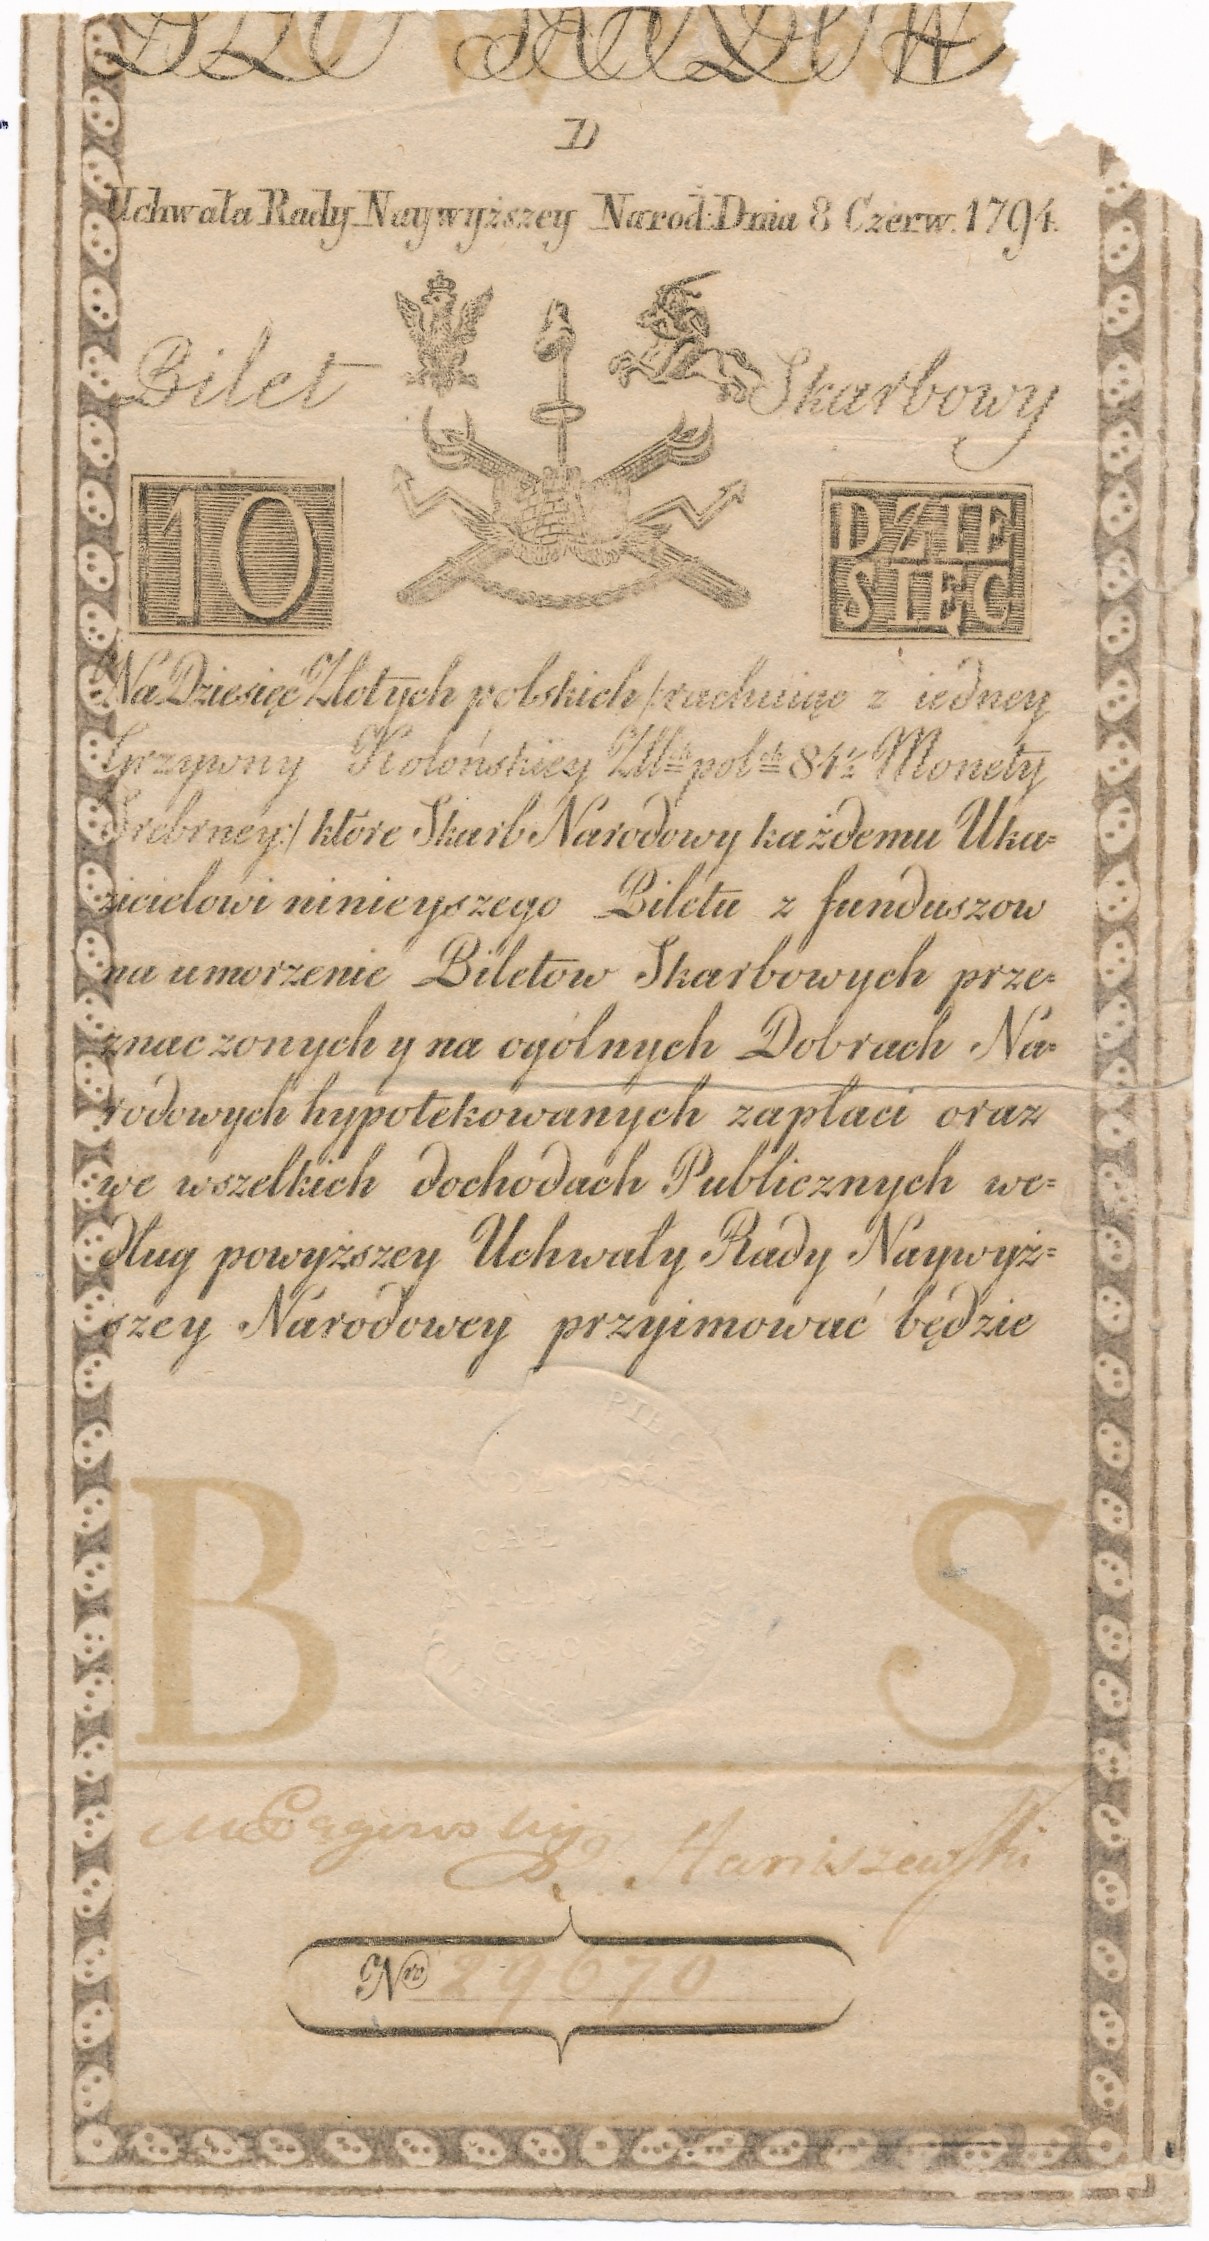 D
Uchwała Rady Naywyższey Narod: Dnia 8 Czerw. 1794.
Bilet Skarbowy
10
DZIE
SIĘC
Na Dziesięć Złotych polskich /:rachuiąc z iedney
Grzywny Kolońskiey Złł:ch pol:ch 84½ Monety
Srebrney:/ które Skarb Narodowy każdemu Uka=
zicielowi ninieyszego Biletu z funduszow
na umorzenie Biletow Skarbowych prze=
znaczonych y na ogólnych Dobrach Na=
rodowych hypotekowanych zapłaci oraz
we wszelkich dochodach Publicznych we=
dług powyższey Uchwały Rady Naywyż=
szey Narodowey przyimować będzie
B S
Nro 29670